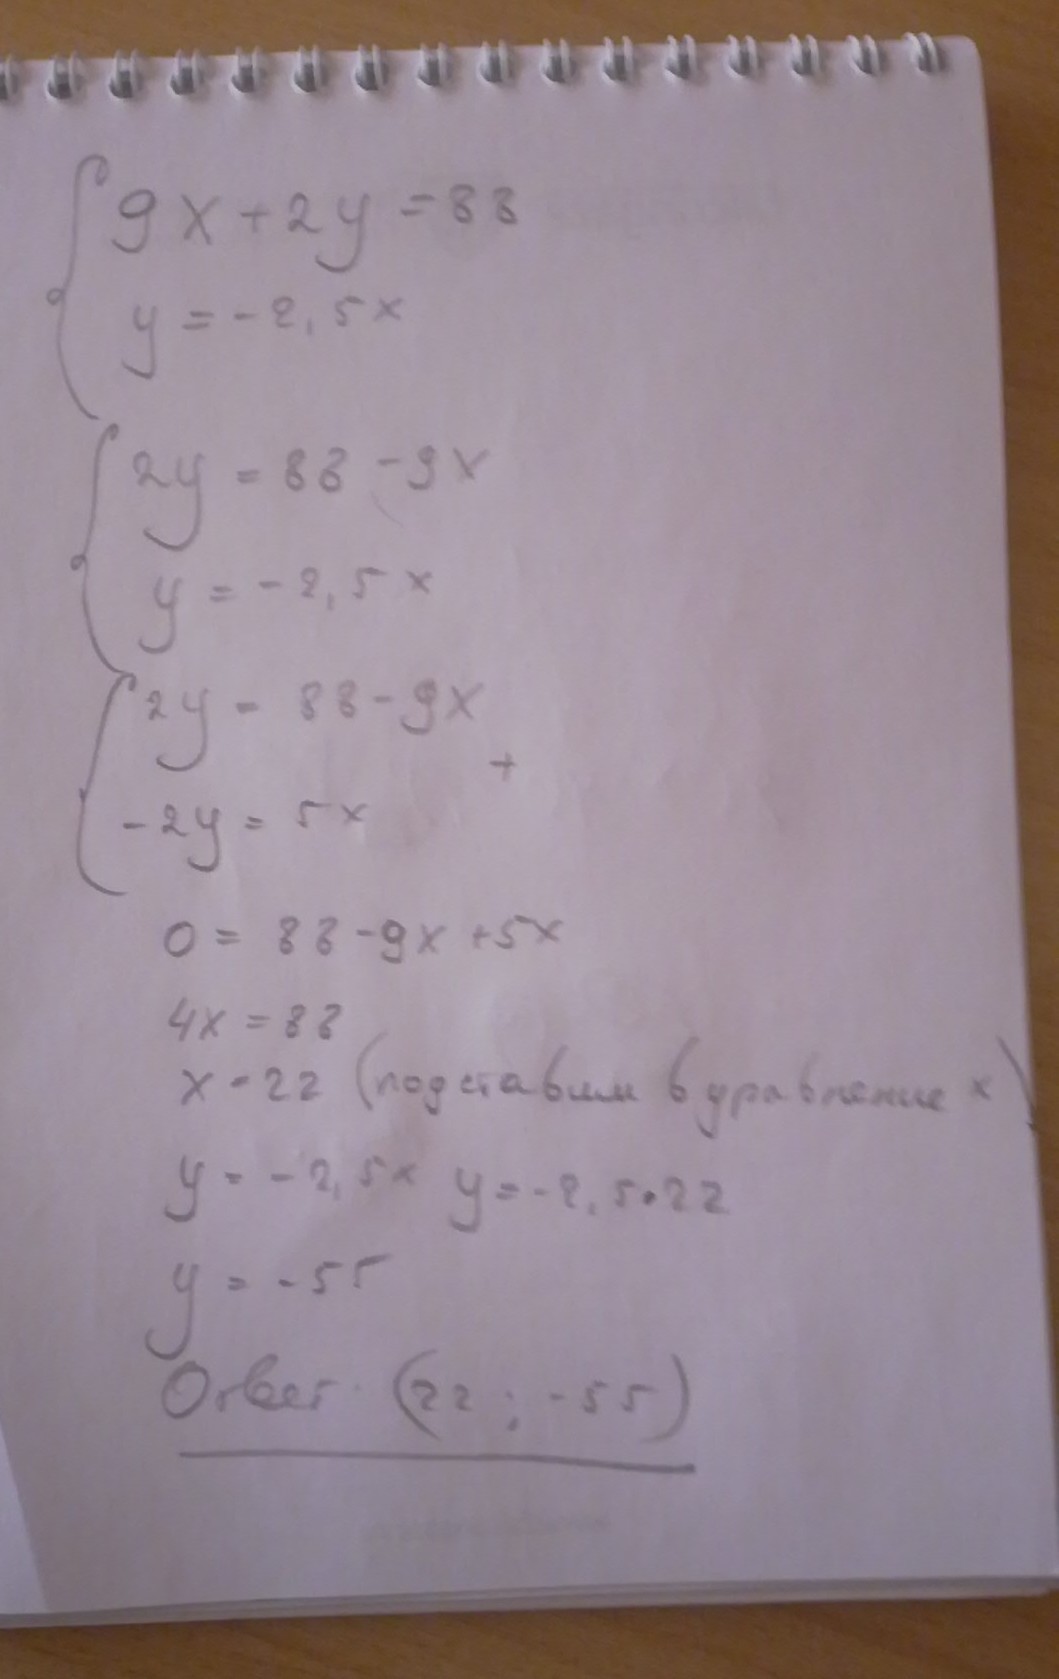 9x+2y=88
y=-2,5x
2y=88-9x
y=-2,5x
2y=88-9x
+
-2y=5x
0=88-9x+5x
4x=88
x=22 (подставим в уравнение x)
y=-2,5x y=-2,5•22
y=-55
Ответ. (22;-55)